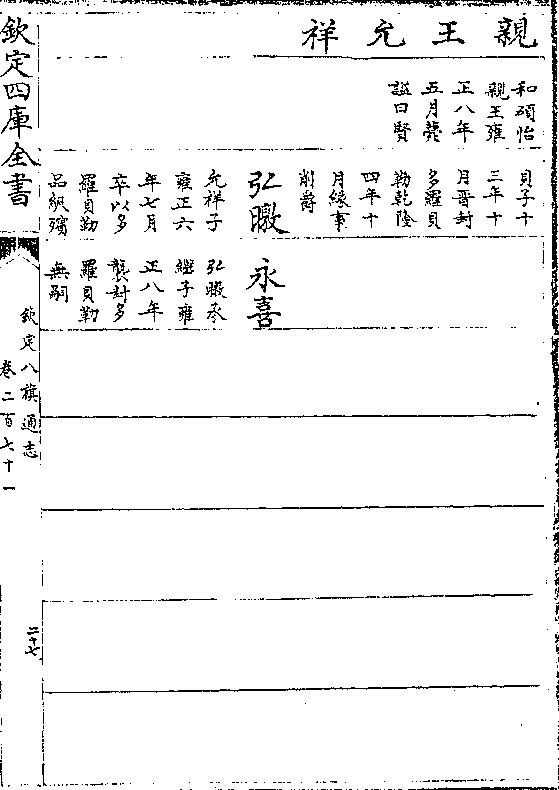 親王允祥
和碩怡
親王雍
正八年
五月薨
諡曰賢
貝子十
三年十
月晉封
多羅貝
勒乾隆
四年十
月緣事
削爵
弘暾
允祥子
雍正六
年七月
卒以多
羅貝勒
品級殯
永喜
弘暾承
繼子雍
正八年
襲封多
羅貝勒
無嗣
欽定四庫全書
欽定八旗通志
卷二百七十一
二十七